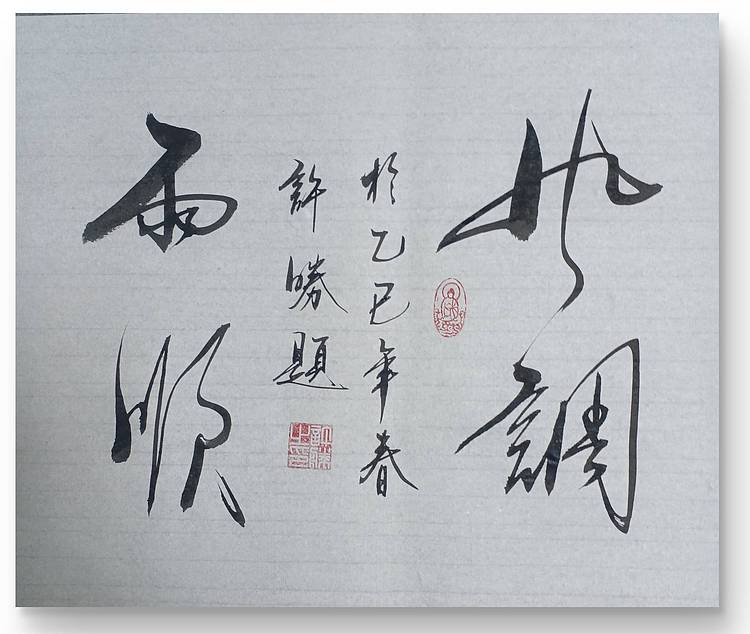 风調
於乙巳年春
許勝題
雨順